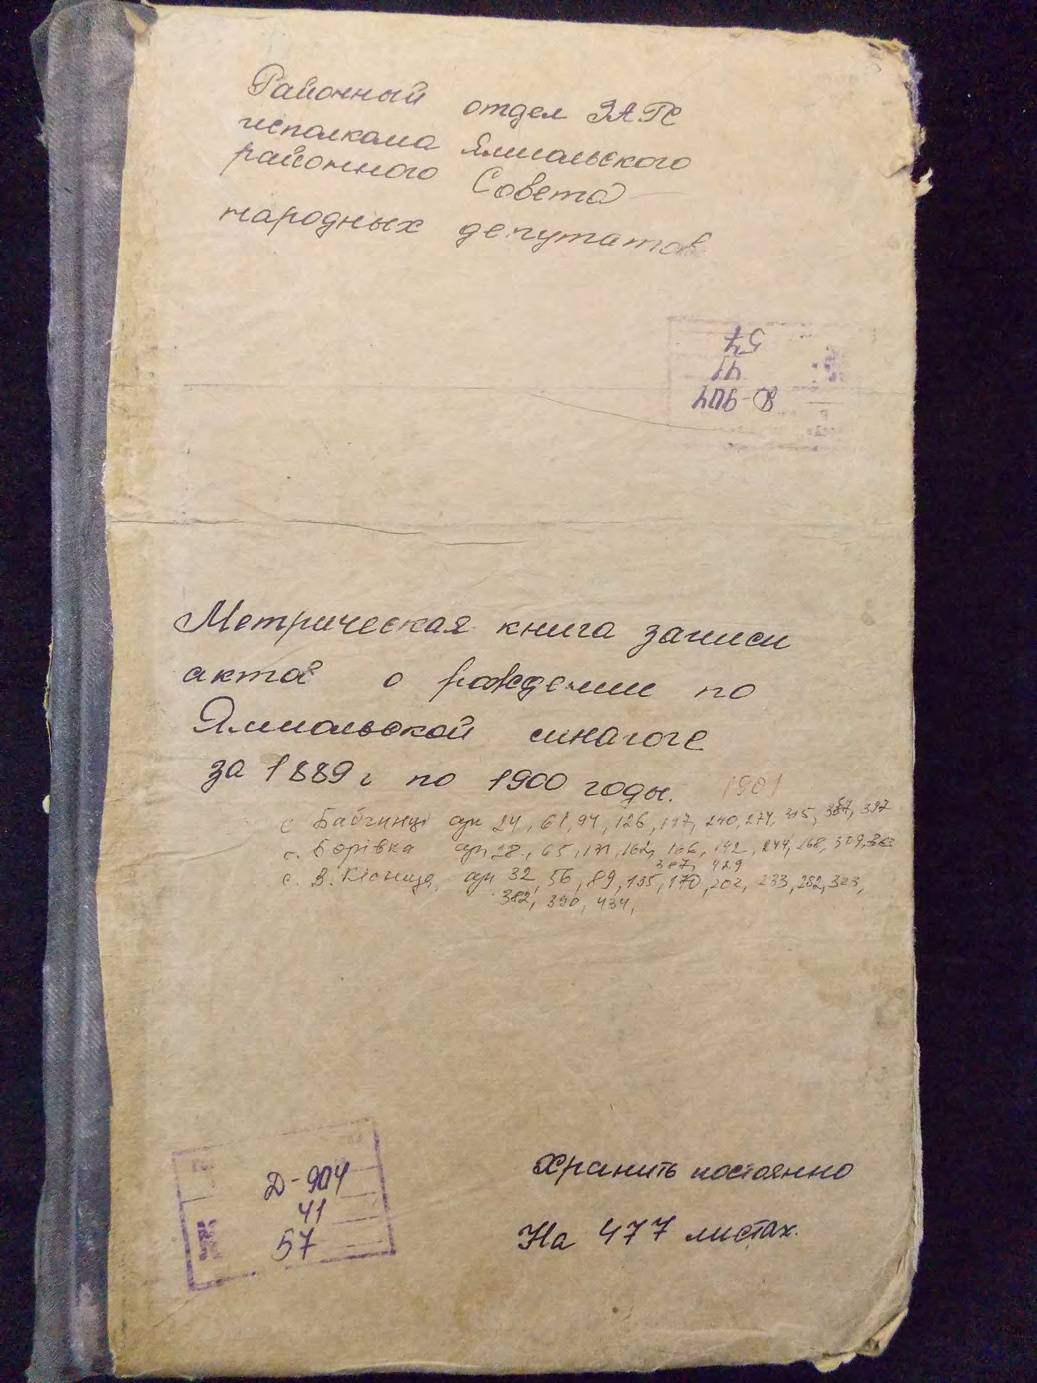 Районный отдел ЗАГС
исполкома Ямпольского
районного Совета
народных депутатов
57
41
Д-904
Метрическая книга записи
актов о рождении по
Ямпольской синагоге
за 1889 г по 1900 годы. 1901
с Бабчинці арк 24, 61, 94, 126, 240, 274, 315, 397
с. Борівка арк 28, 65, 131, 162, 166, 192, 244, 268, 309
387, 429
с. В. Кісниця, арк 32, 56, 89, 135, 170, 202, 233, 282, 323,
382, 390, 434,
Д-904
41
57
хранить постоянно
На 477 листах.